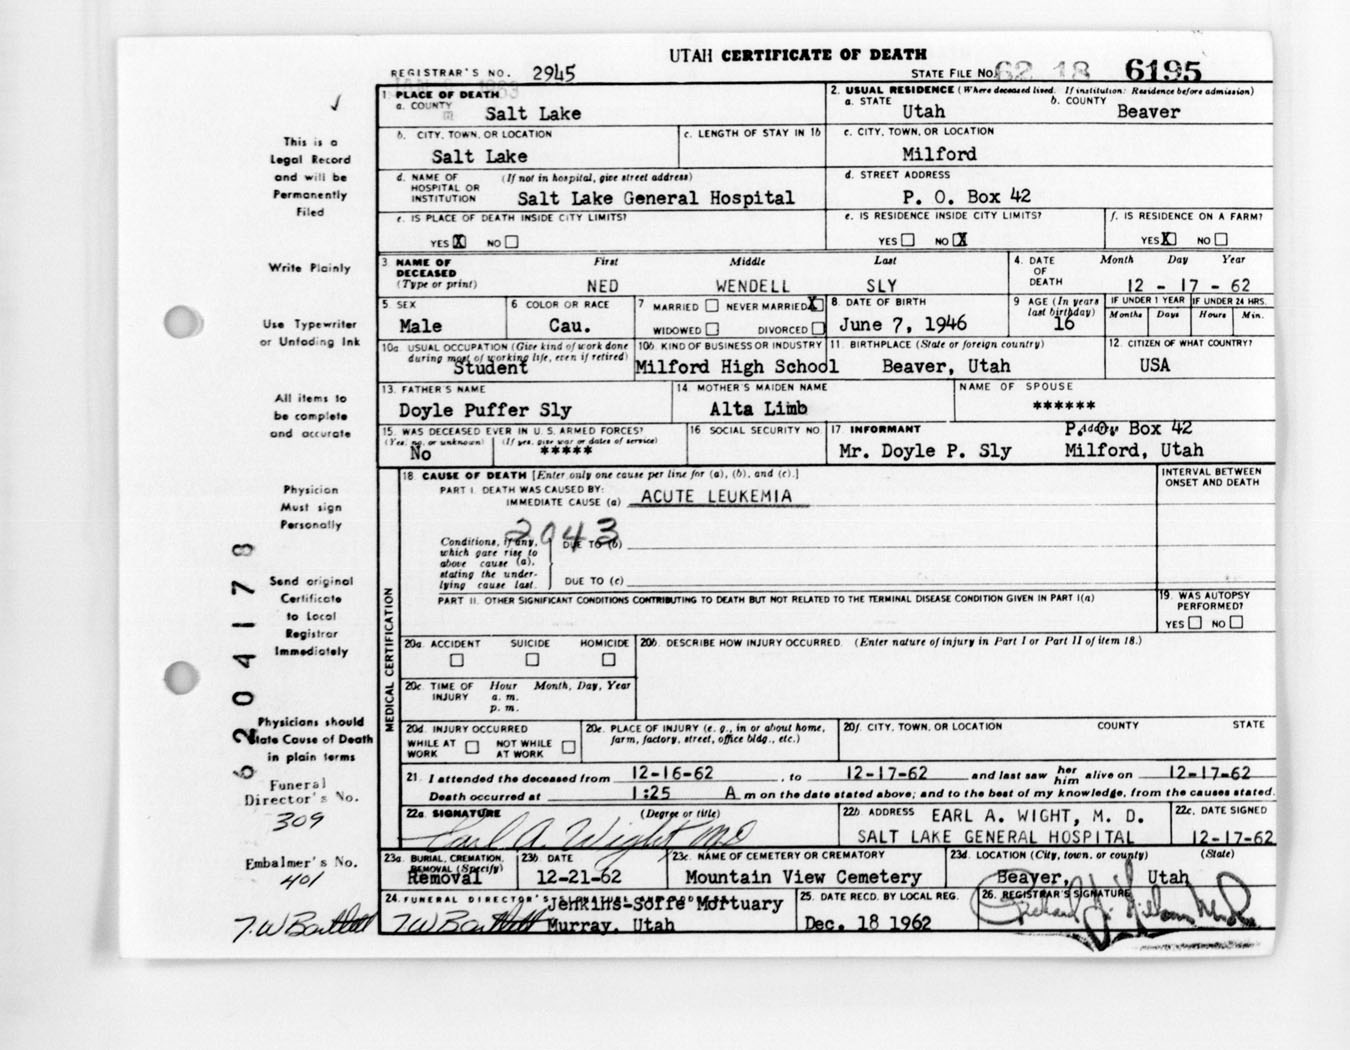 UTAH CERTIFICATE OF DEATH
REGISTRAR'S NO. 2945
STATE FILE NO. 62 18 6195
1. PLACE OF DEATH
a. COUNTY Salt Lake
2. USUAL RESIDENCE (Where deceased lived. If institution: Residence before admission)
a. STATE Utah b. COUNTY Beaver
b. CITY, TOWN, OR LOCATION Salt Lake
c. LENGTH OF STAY IN 1b
c. CITY, TOWN, OR LOCATION Milford
d. NAME OF HOSPITAL OR INSTITUTION (If not in hospital, give street address) Salt Lake General Hospital
d. STREET ADDRESS P. O. Box 42
e. IS PLACE OF DEATH INSIDE CITY LIMITS? YES X NO
e. IS RESIDENCE INSIDE CITY LIMITS? YES NO X
f. IS RESIDENCE ON A FARM? YES X NO
3. NAME OF DECEASED (Type or print) First Middle Last
NED WENDELL SLY
4. DATE OF DEATH Month Day Year
12 - 17 - 62
5. SEX Male
6. COLOR OR RACE Cau.
7. MARRIED NEVER MARRIED X
WIDOWED DIVORCED
8. DATE OF BIRTH June 7, 1946
9. AGE (In years last birthday) 16
IF UNDER 1 YEAR Months Days
IF UNDER 24 HRS. Hours Min.
10a. USUAL OCCUPATION (Give kind of work done during most of working life, even if retired) Student
10b. KIND OF BUSINESS OR INDUSTRY Milford High School
11. BIRTHPLACE (State or foreign country) Beaver, Utah
12. CITIZEN OF WHAT COUNTRY? USA
13. FATHER'S NAME Doyle Puffer Sly
14. MOTHER'S MAIDEN NAME Alta Limb
NAME OF SPOUSE ******
15. WAS DECEASED EVER IN U. S. ARMED FORCES?
(Yes, no, or unknown) No (If yes, give war or dates of service) *****
16. SOCIAL SECURITY NO.
17. INFORMANT Mr. Doyle P. Sly
P. O. Box 42
Milford, Utah
MEDICAL CERTIFICATION
18. CAUSE OF DEATH [Enter only one cause per line for (a), (b), and (c).]
INTERVAL BETWEEN ONSET AND DEATH
PART I. DEATH WAS CAUSED BY:
IMMEDIATE CAUSE (a) ACUTE LEUKEMIA
2043
Conditions, if any, which gave rise to above cause (a), stating the underlying cause last.
DUE TO (b)
DUE TO (c)
PART II. OTHER SIGNIFICANT CONDITIONS CONTRIBUTING TO DEATH BUT NOT RELATED TO THE TERMINAL DISEASE CONDITION GIVEN IN PART I(a)
19. WAS AUTOPSY PERFORMED?
YES NO
20a. ACCIDENT SUICIDE HOMICIDE
20b. DESCRIBE HOW INJURY OCCURRED. (Enter nature of injury in Part I or Part II of item 18.)
20c. TIME OF INJURY Hour Month, Day, Year
a. m.
p. m.
20d. INJURY OCCURRED
WHILE AT WORK NOT WHILE AT WORK
20e. PLACE OF INJURY (e. g., in or about home, farm, factory, street, office bldg., etc.)
20f. CITY, TOWN, OR LOCATION COUNTY STATE
21. I attended the deceased from 12-16-62, to 12-17-62 and last saw her him alive on 12-17-62
Death occurred at 1:25 A m on the date stated above; and to the best of my knowledge, from the causes stated.
22a. SIGNATURE (Degree or title) Earl A. Wight MD
22b. ADDRESS EARL A. WIGHT, M. D.
SALT LAKE GENERAL HOSPITAL
22c. DATE SIGNED 12-17-62
23a. BURIAL, CREMATION, REMOVAL (Specify) Removal
23b. DATE 12-21-62
23c. NAME OF CEMETERY OR CREMATORY Mountain View Cemetery
23d. LOCATION (City, town, or county) (State)
Beaver, Utah
24. FUNERAL DIRECTOR'S
Jenkins-Soffe Mortuary
T W Bartlett Murray, Utah
25. DATE RECD. BY LOCAL REG. Dec. 18 1962
26. REGISTRAR'S SIGNATURE
This is a
Legal Record
and will be
Permanently
Filed
Write Plainly
Use Typewriter
or Unfading Ink
All items to
be complete
and accurate
Physician
Must sign
Personally
Send original
Certificate
to Local
Registrar
Immediately
Physicians should
State Cause of Death
in plain terms
Funeral
Director's No.
309
Embalmer's No.
401
T. W Bartlett
6204178